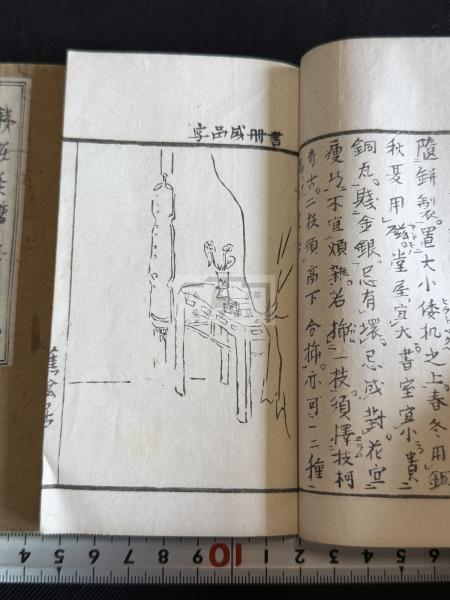 書冊成品字
隨缾製。置大小倭机之上春冬用銅
秋夏用磁堂屋宜大書室宜小貴
銅瓦。賤金銀。忌有環。忌成對。花宜
瘦巧不宜煩雜若揷一枝須擇枝柯
奇古二枝須高下合揷亦可一二種
4 5 6 7 8 9 10 1 2 3 4 5